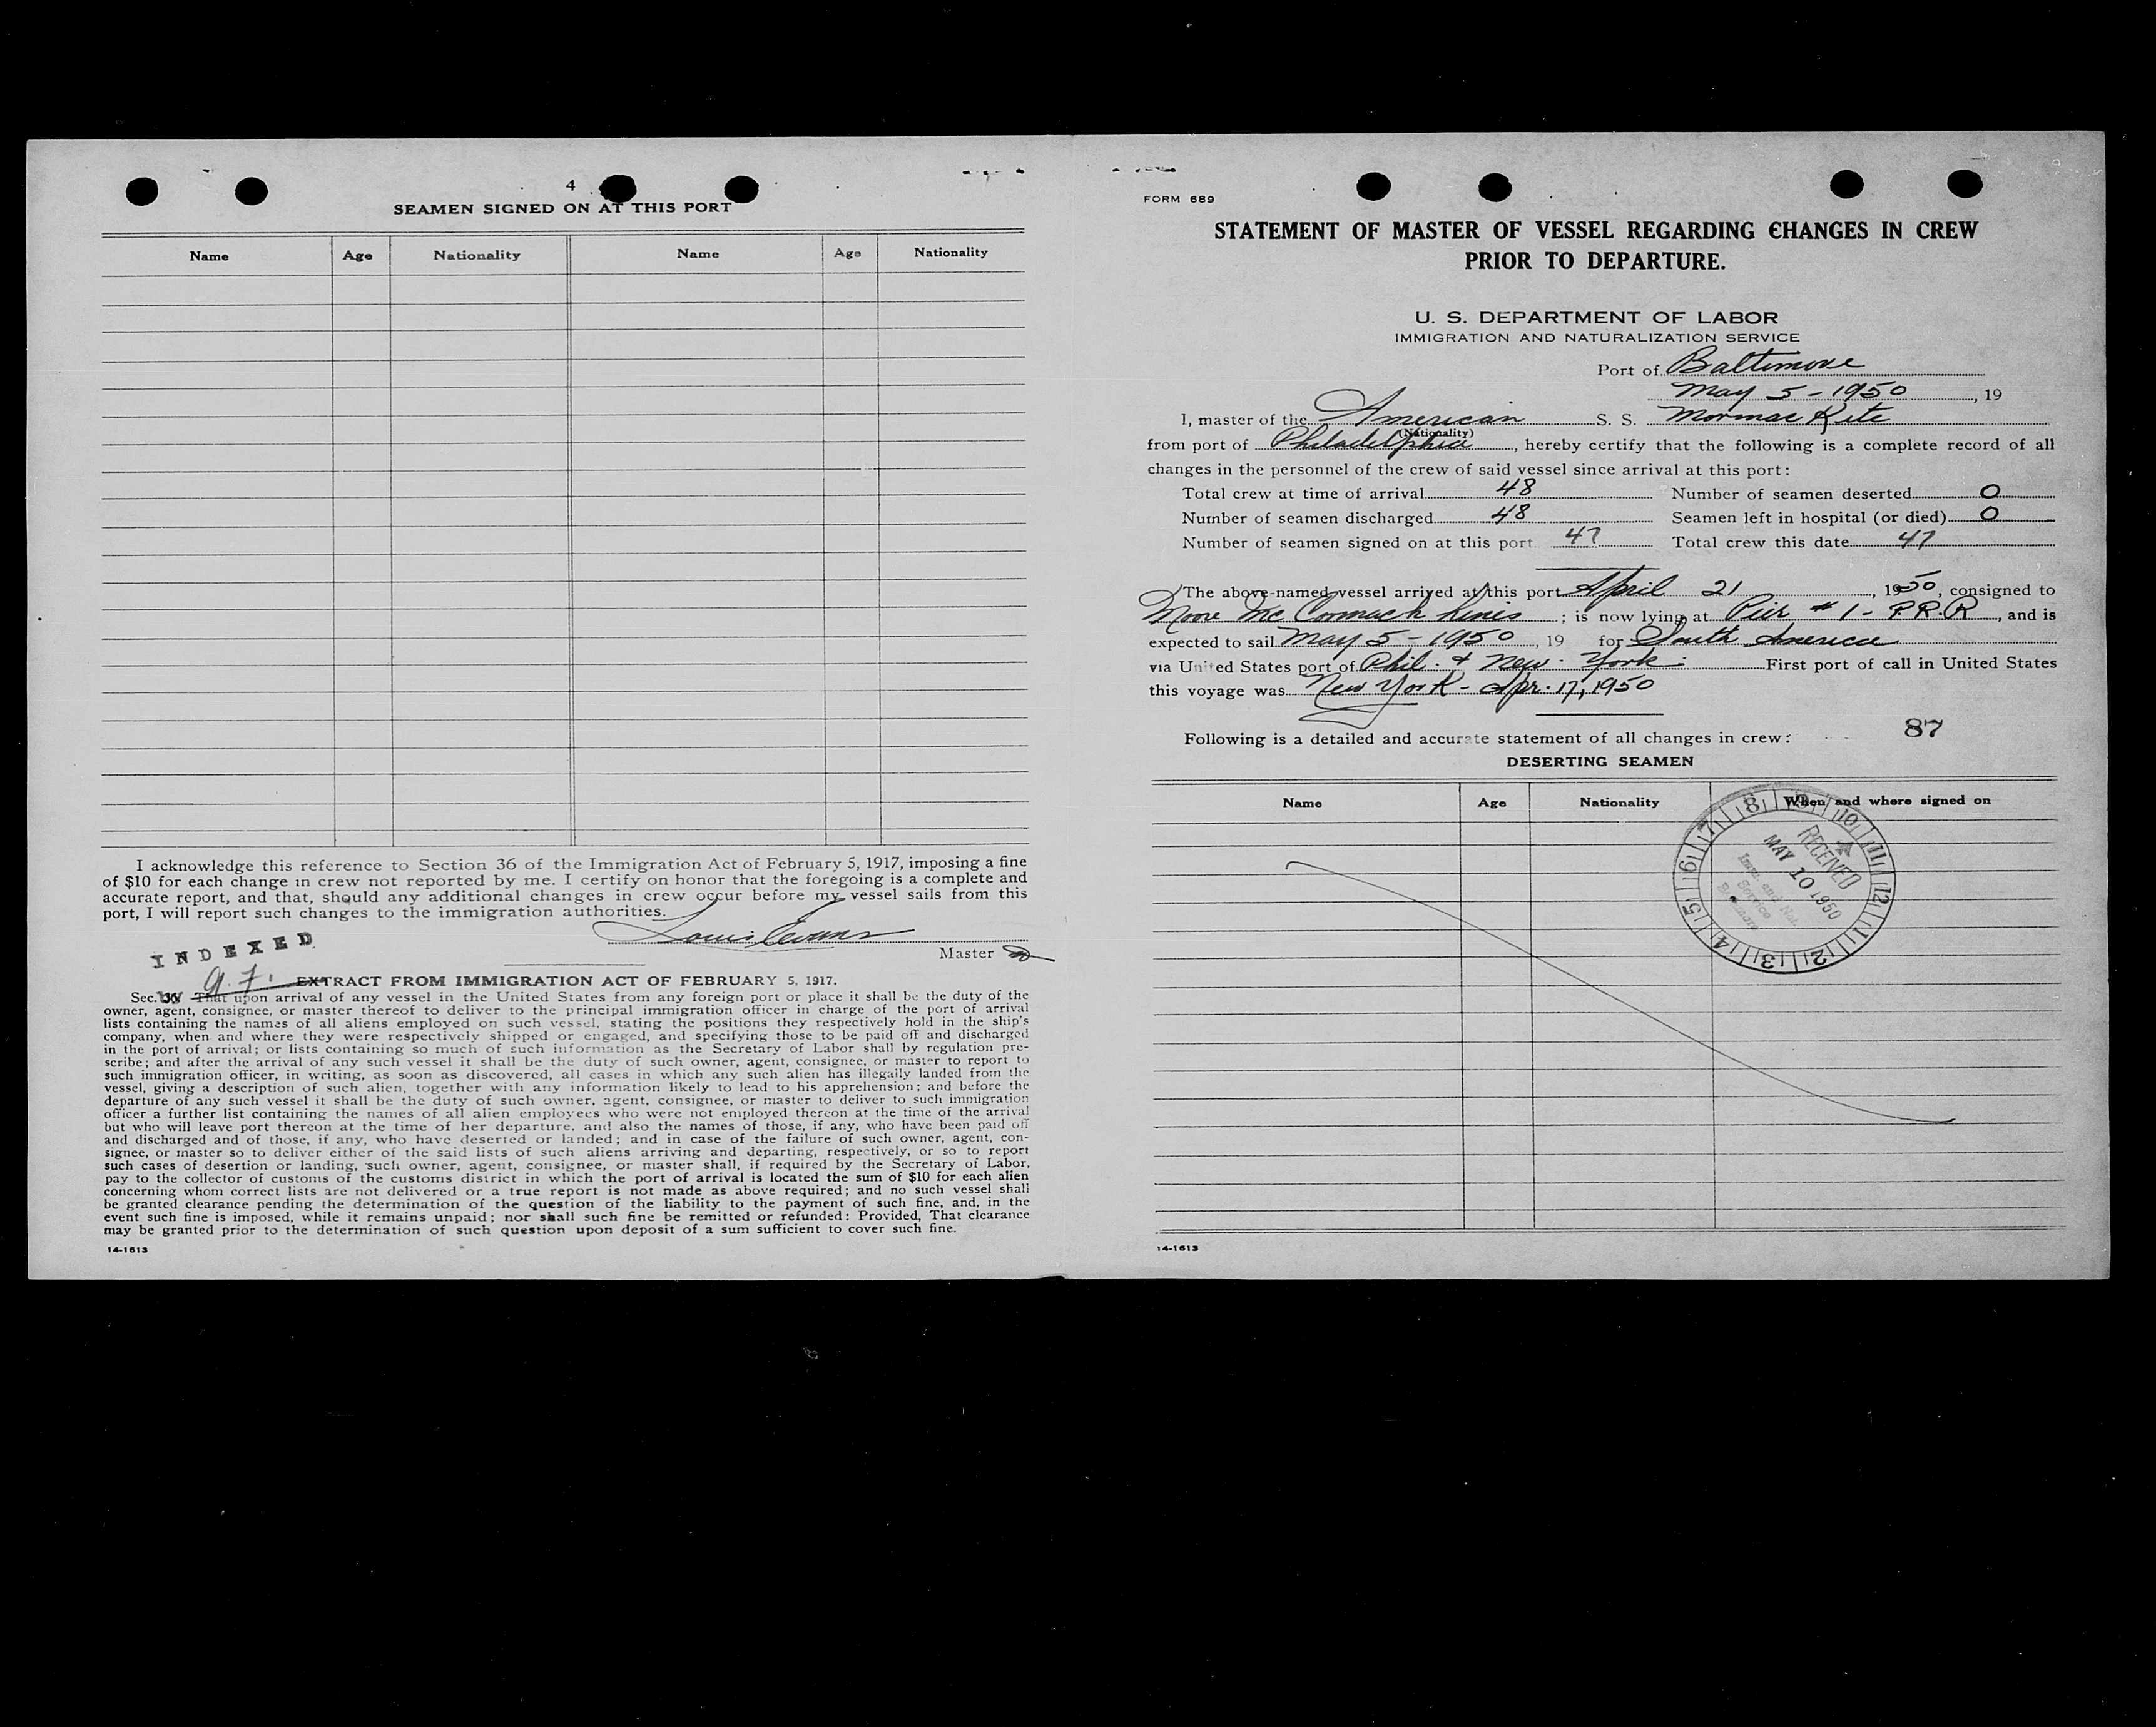 4
SEAMEN SIGNED ON AT THIS PORT
Name Age Nationality Name Age Nationality
I acknowledge this reference to Section 36 of the Immigration Act of February 5, 1917, imposing a fine
of $10 for each change in crew not reported by me. I certify on honor that the foregoing is a complete and
accurate report, and that, should any additional changes in crew occur before my vessel sails from this
port, I will report such changes to the immigration authorities.
Louis Evans
Master
INDEXED
EXTRACT FROM IMMIGRATION ACT OF FEBRUARY 5, 1917.
Sec. That upon arrival of any vessel in the United States from any foreign port or place it shall be the duty of the
owner, agent, consignee, or master thereof to deliver to the principal immigration officer in charge of the port of arrival
lists containing the names of all aliens employed on such vessel, stating the positions they respectively hold in the ship's
company, when and where they were respectively shipped or engaged, and specifying those to be paid off and discharged
in the port of arrival; or lists containing so much of such information as the Secretary of Labor shall by regulation pre-
scribe; and after the arrival of any such vessel it shall be the duty of such owner, agent, consignee, or master to report to
such immigration officer, in writing, as soon as discovered, all cases in which any such alien has illegally landed from the
vessel, giving a description of such alien, together with any information likely to lead to his apprehension; and before the
departure of any such vessel it shall be the duty of such owner, agent, consignee, or master to deliver to such immigration
officer a further list containing the names of all alien employees who were not employed thereon at the time of the arrival
but who will leave port thereon at the time of her departure, and also the names of those, if any, who have been paid off
and discharged and of those, if any, who have deserted or landed; and in case of the failure of such owner, agent, con-
signee, or master so to deliver either of the said lists of such aliens arriving and departing, respectively, or so to report
such cases of desertion or landing, such owner, agent, consignee, or master shall, if required by the Secretary of Labor,
pay to the collector of customs of the customs district in which the port of arrival is located the sum of $10 for each alien
concerning whom correct lists are not delivered or a true report is not made as above required; and no such vessel shall
be granted clearance pending the determination of the question of the liability to the payment of such fine, and, in the
event such fine is imposed, while it remains unpaid; nor shall such fine be remitted or refunded: Provided, That clearance
may be granted prior to the determination of such question upon deposit of a sum sufficient to cover such fine.
14-1613
FORM 689
STATEMENT OF MASTER OF VESSEL REGARDING CHANGES IN CREW
PRIOR TO DEPARTURE.
U. S. DEPARTMENT OF LABOR
IMMIGRATION AND NATURALIZATION SERVICE
Port of Baltimore
May 5 - 1950, 19
I, master of the American S. S. Mormac Kite
(Nationality)
from port of Philadelphia, hereby certify that the following is a complete record of all
changes in the personnel of the crew of said vessel since arrival at this port:
Total crew at time of arrival 48 Number of seamen deserted 0
Number of seamen discharged 48 Seamen left in hospital (or died) 0
Number of seamen signed on at this port 47 Total crew this date 47
The above-named vessel arrived at this port April 21, 1950, consigned to
Moore Mc Cormack Lines; is now lying at Pier # 1 - P.R.R, and is
expected to sail May 5 - 1950, 19 for South America
via United States port of Phil. & New York First port of call in United States
this voyage was New York - Apr. 17, 1950
87
Following is a detailed and accurate statement of all changes in crew:
DESERTING SEAMEN
Name Age Nationality When and where signed on
8 9 10 11 12 1 2 3 4 5 6 7
RECEIVED
MAY 10 1950
14-1613